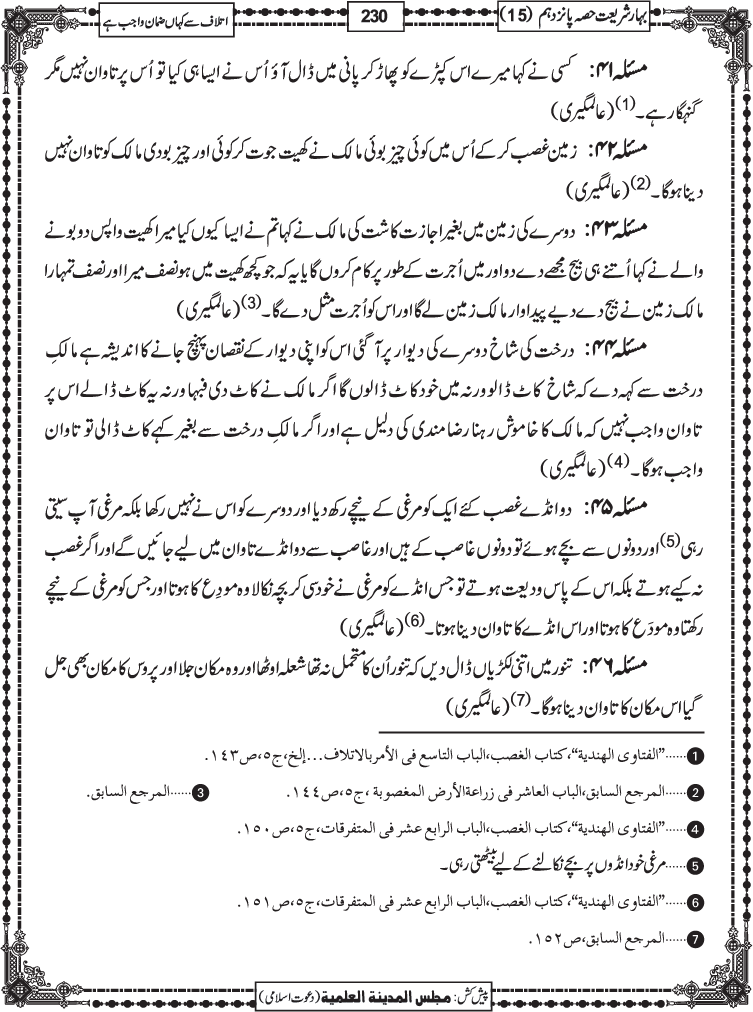 بہار شریعت حصہ پانزدہم (15)
230
اتلاف سے کہاں ضمان واجب ہے
مسئلہ ۴۱: کسی نے کہا میرے اس کپڑے کو پھاڑ کر پانی میں ڈال آؤ اُس نے ایسا ہی کیا تو اُس پر تاوان نہیں مگر
گنہگار ہے۔(1) (عالمگیری)
مسئلہ ۴۲: زمین غصب کر کے اُس میں کوئی چیز بوئی مالک نے کھیت جوت کر کوئی اور چیز بودی مالک کو تاوان نہیں
دینا ہوگا۔(2) (عالمگیری)
مسئلہ ۴۳: دوسرے کی زمین میں بغیر اجازت کاشت کی مالک نے کہا تم نے ایسا کیوں کیا میرا کھیت واپس دو بونے
والے نے کہا اُتنے ہی بیج مجھے دے دو اور میں اُجرت کے طور پر کام کروں گا یا یہ کہ جو کچھ کھیت میں ہو نصف میرا اور نصف تمہارا
مالک زمین نے بیج دے دیے پیداوار مالک زمین لے گا اور اس کو اُجرت مثل دے گا۔(3) (عالمگیری)
مسئلہ ۴۴: درخت کی شاخ دوسرے کی دیوار پر آگئی اس کو اپنی دیوار کے نقصان پہنچ جانے کا اندیشہ ہے مالکِ
درخت سے کہہ دے کہ شاخ کاٹ ڈالو ورنہ میں خود کاٹ ڈالوں گا اگر مالک نے کاٹ دی فبہا ورنہ یہ کاٹ ڈالے اس پر
تاوان واجب نہیں کہ مالک کا خاموش رہنا رضامندی کی دلیل ہے اور اگر مالکِ درخت سے بغیر کہے کاٹ ڈالی تو تاوان
واجب ہوگا۔(4) (عالمگیری)
مسئلہ ۴۵: دو انڈے غصب کئے ایک کو مرغی کے نیچے رکھ دیا اور دوسرے کو اس نے نہیں رکھا بلکہ مرغی آپ سیتی
رہی(5) اور دونوں سے بچے ہوئے تو دونوں غاصب کے ہیں اور غاصب سے دو انڈے تاوان میں لیے جائیں گے اور اگر غصب
نہ کیے ہوتے بلکہ اس کے پاس ودیعت ہوتے تو جس انڈے کو مرغی نے خود سی کر بچہ نکالا وہ مودِع کا ہوتا اور جس کو مرغی کے نیچے
رکھتا وہ مودَع کا ہوتا اور اس انڈے کا تاوان دینا ہوتا۔(6) (عالمگیری)
مسئلہ ۴۶: تنور میں اتنی لکڑیاں ڈال دیں کہ تنور اُن کا متحمل نہ تھا شعلہ اوٹھا اور وہ مکان جلا اور پروس کا مکان بھی جل
گیا اس مکان کا تاوان دینا ہوگا۔(7) (عالمگیری)
1 ......"الفتاوی الھندیة"،کتاب الغصب،الباب التاسع فی الأمر بالاتلاف...إلخ،ج٥،ص١٤٣.
2 ......المرجع السابق،الباب العاشر فی زراعةالأرض المغصوبة،ج٥،ص١٤٤. 3 ......المرجع السابق.
4 ......"الفتاوی الھندیة"،کتاب الغصب،الباب الرابع عشر فی المتفرقات،ج٥،ص١٥٠.
5 ......مرغی خود انڈوں پر بچے نکالنے کے لیے بیٹھتی رہی۔
6 ......"الفتاوی الھندیة"،کتاب الغصب،الباب الرابع عشر فی المتفرقات،ج٥،ص١٥١.
7 ......المرجع السابق،ص١٥٢.
پیش کش: مجلس المدینة العلمیة (دعوت اسلامی)